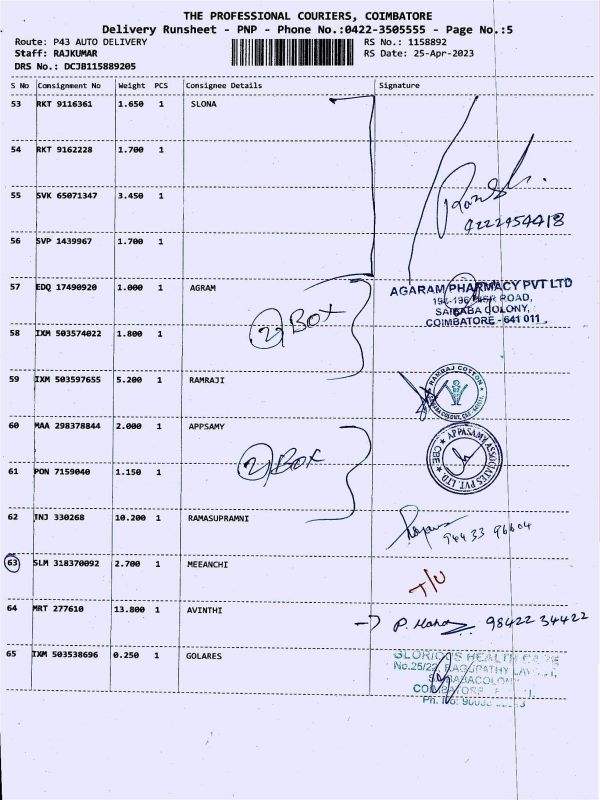 THE PROFESSIONAL COURIERS, COIMBATORE
Delivery Runsheet - PNP - Phone No.:0422-3505555 - Page No.:5
Route: P43 AUTO DELIVERY
RS No.: 1158892
Staff: RAJKUMAR
RS Date: 25-Apr-2023
DRS No.: DCJB115889205
S No Consignment No Weight PCS Consignee Details Signature
53 RKT 9116361 1.650 1 SLONA
54 RKT 9162228 1.700 1
55 SVK 65071347 3.450 1
4222954418
56 SVP 1439967 1.700 1
57 EDQ 17490920 1.000 1 AGRAM
AGARAM PHARMACY PVT LTD
ROAD,
SAIBABA COLONY,
COIMBATORE - 641 011
2 Box
58 IXM 503574022 1.800 1
59 IXM 503597655 5.200 1 RAMRAJI
RAMRAJ COTTON
60 MAA 298378844 2.000 1 APPSAMY
APPASAMY ASSOCIATES PVT. LTD. CBE
2 Box
61 PON 7159040 1.150 1
62 INJ 330268 10.200 1 RAMASUPRAMNI
94433 96604
63 SLM 318370092 2.700 1 MEEANCHI
T/U
64 MRT 277610 13.800 1 AVINTHI
P. 98422 34422
65 IXM 503538696 0.250 1 GOLARES
GLORIOUS HEALTH CARE
No.25/22, RAGUPATHY
SAIBABACOLONY